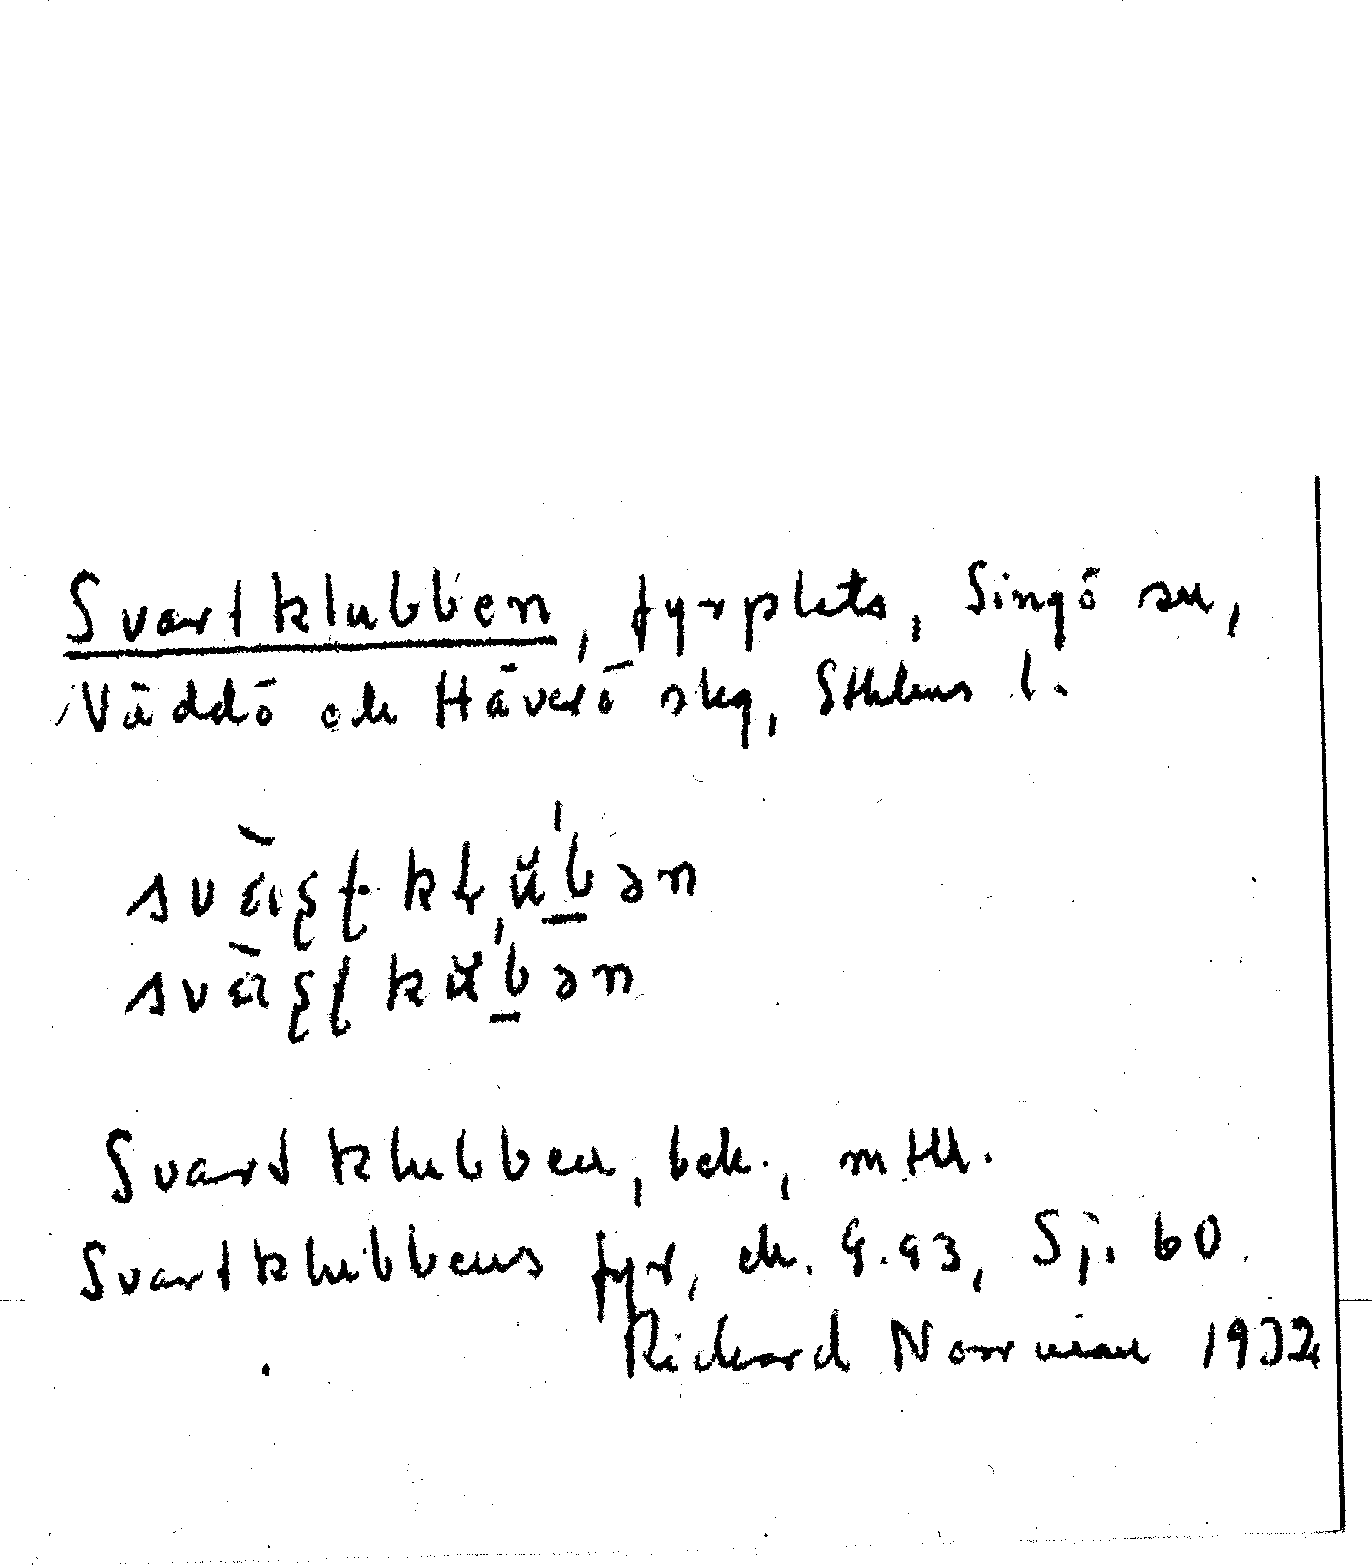 Svartklubben, fyrplats, Singö sn,
Väddö och Häverö skg, Sthlms l.
Svartklubben, bek., mtll.
Svartklubbens fyr, ek. 9.93, Sj. 60.
Rickard Norrman 1932